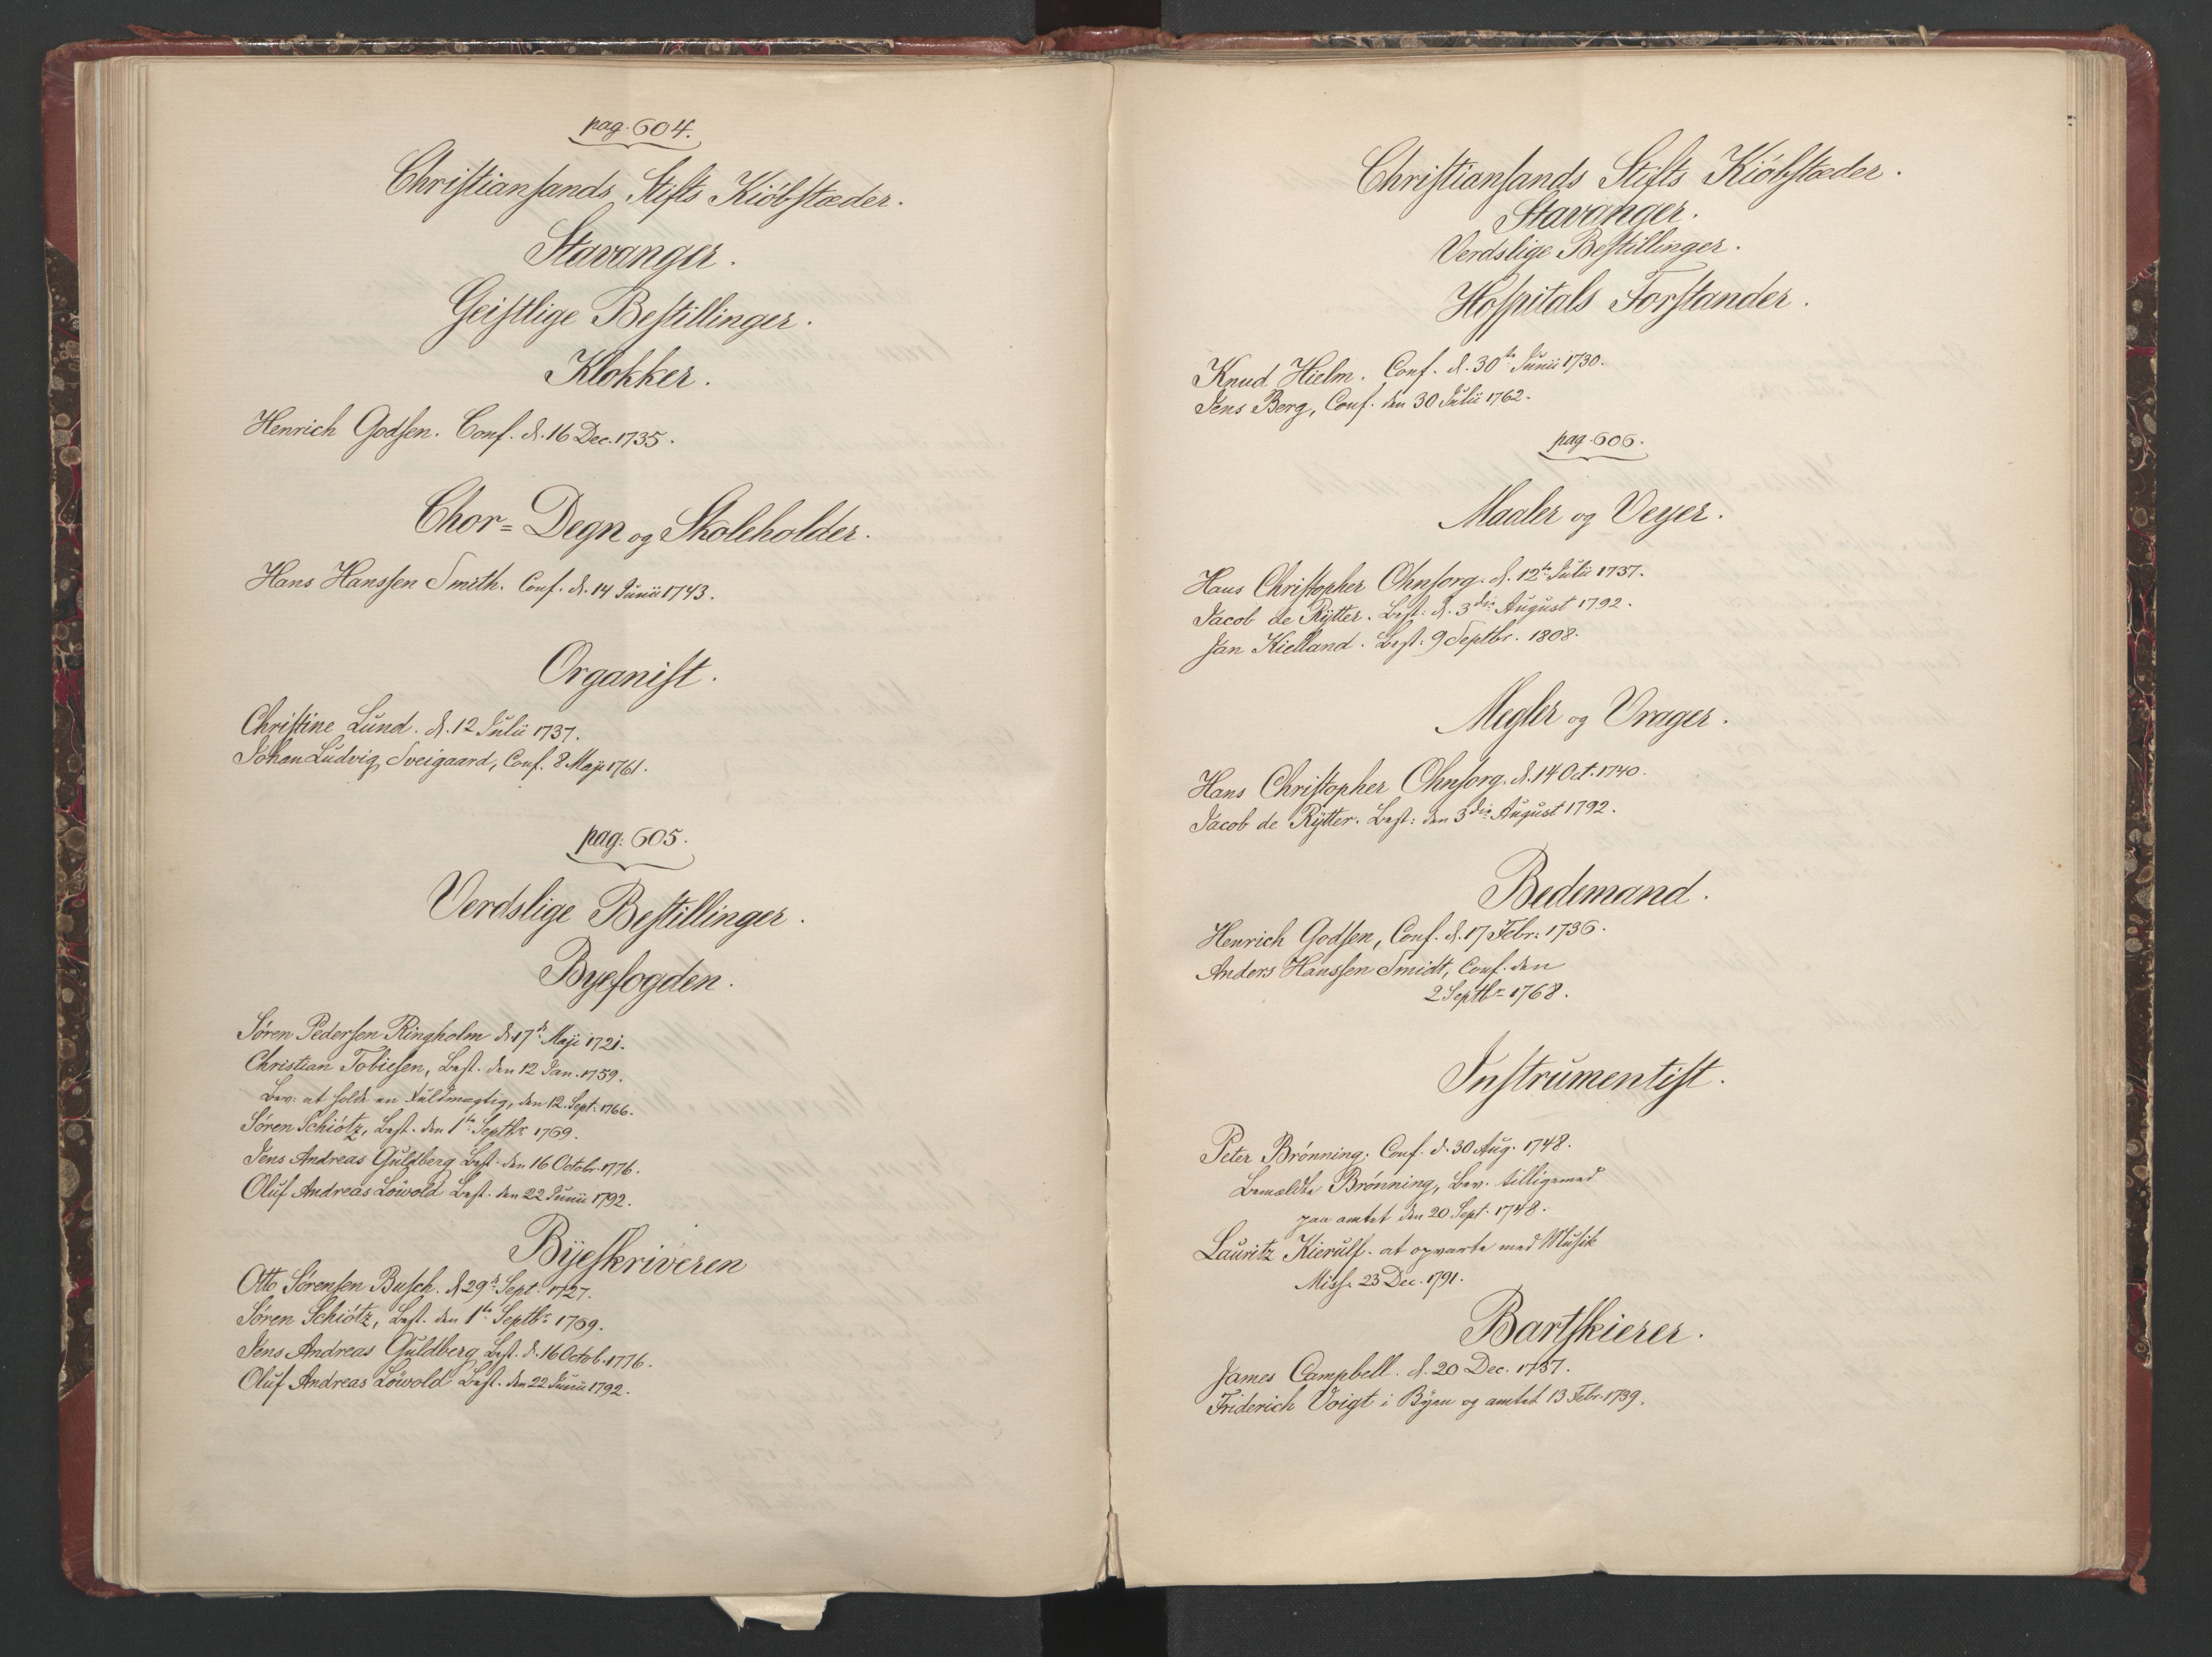 pag. 604.
Christiansands Stifts Kiöbstæder.
Stavanger.
Geistlige Bestillinger.
Klokker.
Henrich Godsen. Conf. d. 16 Dec. 1735.
Chor= Degn og Skoleholder.
Hans Hanssen Smith. Conf. d. 14 Junii 1743.
Organist.
Christine Lund. d. 12 Julii 1737.
Johan Ludvig Sveigaard, Conf. 8 Maji 1761.
pag: 605.
Verdslige Bestillinger.
Byefogden.
Sören Pedersen Ringholm d. 17d Maji 1721.
Christian Tobiesen, Best. den 12 Jan. 1759.
Bev: at holde en Fuldmægtig, den 12. Sept. 1766.
Sören Schiötz, Best. den 1te Septbr 1769.
Jens Andreas Guldberg Best. den 16 Octobr. 1776.
Oluf Andreas Löwold Best. den 22 Junii 1792.
Byeskriveren
Otto Sörensen Busch. d. 29d Sept. 1727.
Sören Schiötz, Best. den 1te Septbr 1769.
Jens Andreas Guldberg Best. d. 16 Octob. 1776.
Oluf Andreas Löwold Best. den 22 Junii 1792.
Christiansands Stifts Kiöbstæder.
Stavanger.
Verdslige Bestillinger.
Hospitals Forstander.
Knud Hielm. Conf. d. 30te Junii 1730.
Jens Berg, Conf. den 30 Julii 1762.
pag. 606.
Maaler og Veyer.
Hans Christopher Ohnsorg. d. 12te Julii 1737.
Jacob de Rytter. Best: d. 3die August 1792.
Jan Kielland. Best: 9 Septbr. 1808.
Megler og Vrager.
Hans Christopher Ohnsorg. d. 14 Oct. 1740.
Jacob de Rytter. Best: den 3die August 1792.
Bedemand.
Henrich Godsen, Conf. d. 17 Febr: 1736.
Anders Hanssen Smidt, Conf. den
2 Septbr 1768.
Instrumentist.
Peter Brönning; Conf. d. 30 Aug. 1748.
Bemældte Brönning, Bev. tilligemed
paa amtet den 20 Sept. 1748.
Lauritz Kierulf. at opvarte med Musik
Miss. 23 Dec. 1791.
Bartskierer.
James Campbell. d. 20 Dec. 1737.
Friderich Voigt i Byen og amtet 13 Febr. 1739.